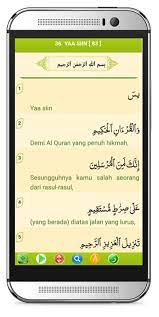 36. YAA SIIN [ 83 ]
بِسْمِ اللَّهِ الرَّحْمَٰنِ الرَّحِيمِ
1
يسٓ
Yaa siin
2
وَالْقُرْءَانِ الْحَكِيمِ
Demi Al Quran yang penuh hikmah,
3
إِنَّكَ لَمِنَ الْمُرْسَلِينَ
Sesungguhnya kamu salah seorang
dari rasul-rasul,
4
عَلَىٰ صِرَٰطٍ مُّسْتَقِيمٍ
(yang berada) diatas jalan yang lurus,
5
تَنزِيلَ الْعَزِيزِ الرَّحِيمِ